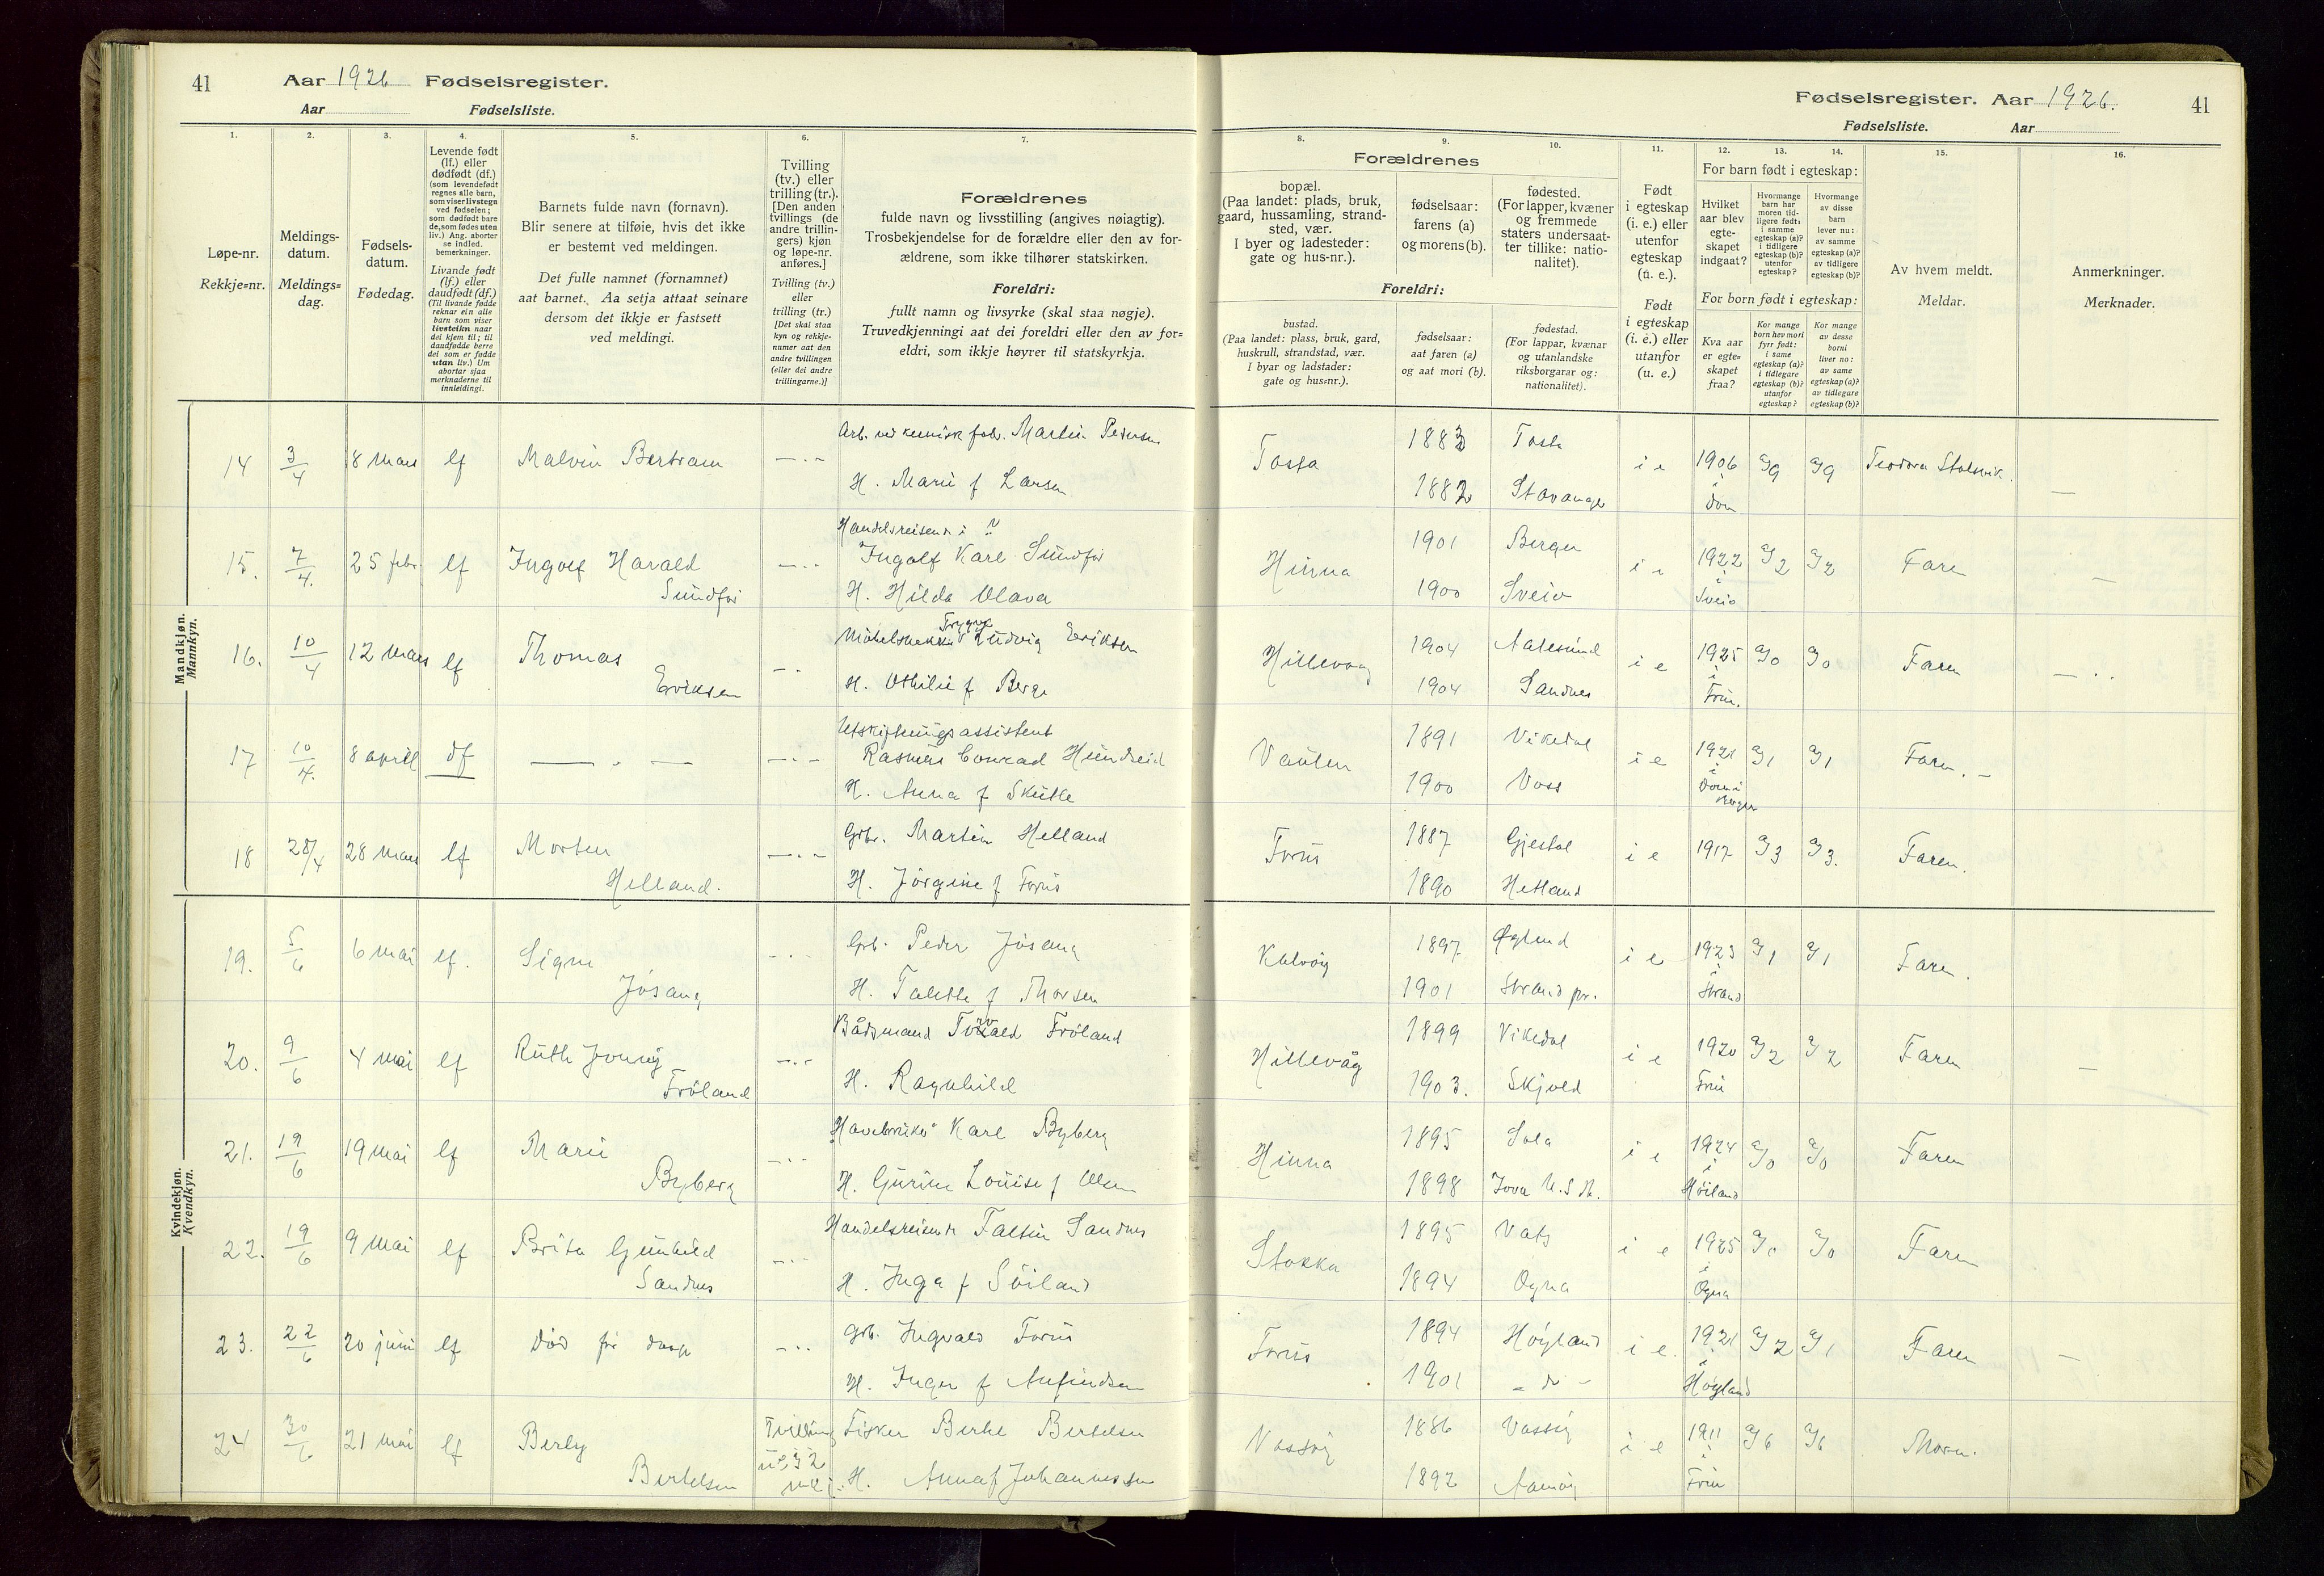 41
Aar 1926 Fødselsregister.
Aar Fødselsliste.
Fødselsregister. Aar 1926.
41
Fødselsliste. Aar
1.
2.
3.
4.
5.
6.
7.
8.
9.
10.
11.
12.
13.
14.
15.
16.
Løpe-nr.
Rekkje=nr.
Meldings-
datum.
Meldings=
dag.
Fødsels-
datum.
Fødedag.
Levende født
(lf.) eller
dødfødt (df.)
(som levendefødt
regnes alle barn,
som viser livstegn
ved fødselen;
som dødfødt bare
de, som fødes uten
liv.) Ang. aborter
se indled.
bemerkninger.
Livande født
(lf.) eller
daudfødt (df.)
(Til livande fødde
reknar ein alle
barn som viser
livsteikn naar
dei kjem til; til
daudfødde berre
dei som er fødde
utan liv.) Um
abortar sjaa
merknaderne til
innleidingi.
Barnets fulde navn (fornavn).
Blir senere at tilføie, hvis det ikke
er bestemt ved meldingen.
Det fulle namnet (fornamnet)
aat barnet. Aa setja attaat seinare
dersom det ikkje er fastsett
ved meldingi.
Tvilling
(tv.) eller
trilling (tr.).
[Den anden
tvillings (de
andre trillin-
gers) kjøn
og løpe-nr.
anføres.]
Tvilling (tv.)
eller
trilling (tr.)
[Det skal staa
kyn og rekkje-
numer aat den
andre tvillingen
(eller dei andre
trillingarne.)]
Forældrenes
fulde navn og livsstilling (angives nøiagtig).
Trosbekjendelse for de forældre eller den av for-
ældrene, som ikke tilhører statskirken.
Foreldri:
fullt namn og livsyrke (skal staa nøgje).
Truvedkjenningi aat dei foreldri eller den av for=
eldri, som ikkje høyrer til statskyrkja.
Forældrenes
bopæl.
(Paa landet: plads, bruk,
gaard, hussamling, strand-
sted, vær.
I byer og ladesteder:
gate og hus-nr.).
fødselsaar:
farens (a)
og morens (b).
fødested.
(For lapper, kvæner
og fremmede
staters undersaat-
ter tillike: natio-
nalitet).
Foreldri:
bustad.
(Paa landet: plass, bruk, gard,
huskrull, strandstad, vær.
I byar og ladstader:
gate og hus=nr.).
fødselsaar:
aat faren (a)
og aat mori (b).
fødestad.
(For lappar, kvænar
og utanlandske
riksborgarar og:
nationalitet).
Født
i egteskap
(i. e.) eller
utenfor
egteskap
(u. e.).
Født
i egteskap
(i. e.) eller
utanfor
(u. e.)
For barn født i egteskap:
Hvilket
aar blev
egte-
skapet
indgaat?
Hvormange
barn har
moren tid-
ligere født:
i samme
egteskap (a)?
i tidligere
egteskap (b)?
utenfor
egteskap?
Hvormange
av disse
barn
lever nu:
av samme
egteskap (a)?
av tidligere
egteskap (b)?
For born født i egteskap:
Kva aar
er egte=
skapet
fraa?
Kor mange
born hev mori
fyrr født:
i same
egteskap (a)?
i tidlegare
egteskap (b)?
utanfor
egteskap?
Kor mange
av desse
borni
liver no:
av same
egteskap (a)?
av tidlegare
egteskap (b)?
Av hvem meldt.
Meldar.
Anmerkninger.
Merknader.
Mandkjøn.
Mannkyn.
14 3/4 8 mars lf Malvin Bertram Arb. ved kemisk fabr. Martin Pedersen
H. Marie f Larsen
Tasta 1883 Tasta i e 1906 a/9 a/9 Teodora Stolsvik.
1882 Stavanger i Dom
15. 7/4. 25 febr lf Ingolf Harald Sundfør
Handelsreisende i ?
Ingolf Karl Sundfør
H. Hilda Olava
Hinna 1901 Bergen i e 1922 a/2 a/2 Faren
1900 Sveio i Sveio
16. 10/4 12 mars lf Thomas Eriksen
Trygve
Ludvig Eriksen
H. Othilie f Berge
Hillevaag 1904 Aalesund i e 1925 a/0 a/0 Faren
1904 Sandnes i Frue.
17 10/4. 8 april df
Utskiftningsassistent
Rasmus Conrad Hundseid
H. Anna f Skutle
Vaulen 1891 Vikedal i e 1921 a/1 a/1 Faren.
1900 Voss i Dom i Bergen
18 28/4 28 mars lf Morten Helland.
Grbr. Martin Helland
H. Jørgine f Forus
Forus 1887 Gjestal i e 1917 a/3 a/3. Faren.
1890 Hetland
Kvindekjøn.
Kvendkyn.
19. 5/6 6 mai lf. Signe Jøsang
Grb. Peder Jøsang
H. Talette f Thorsen
Kalvøy 1897 Øglend i e 1923 a/1 a/1 Faren.
1901 Strand pr. i Strand
20. 9/6 4 mai lf Ruth Jonny Frøland
Bådsmand Torvald Frøland
H. Ragnhild
Hillevåg 1899 Vikedal i e 1920 a/2 a/2 Faren
1903. Skjold Frue
21. 19/6 19 mai lf Marie Byberg
"Havebruker" Karl Byberg
H. Gurine Louise f Olsen
Hinna 1895 Sola i e 1924 a/0 a/0 Faren
1898 Iova U.S.A. i Høiland
22. 19/6 9 mai lf Brita Gunhild Sandnes
Handelsreisende Faltin Sandnes
H. Inga f Søiland
Stokka 1895 Vats i e 1925 a/0 a/0 Faren
1894 Ogna i Ogna
23. 22/6 20 juni lf Død før daap
Grb. Ingvald Forus
H. Inger f Anfindsen
Forus 1894 Høyland i e. 1921 a/2 a/1 Faren
1901 - d - i Høyland
24 30/6 21 mai lf Berly Bertelsen
Tvilling
Fisker Bertel Bertelsen
H. Anna f Johannessen
Vassøy 1886 Vassøy i e 1911 a/6 a/6 Moren.
1892 Aamøy i Frue